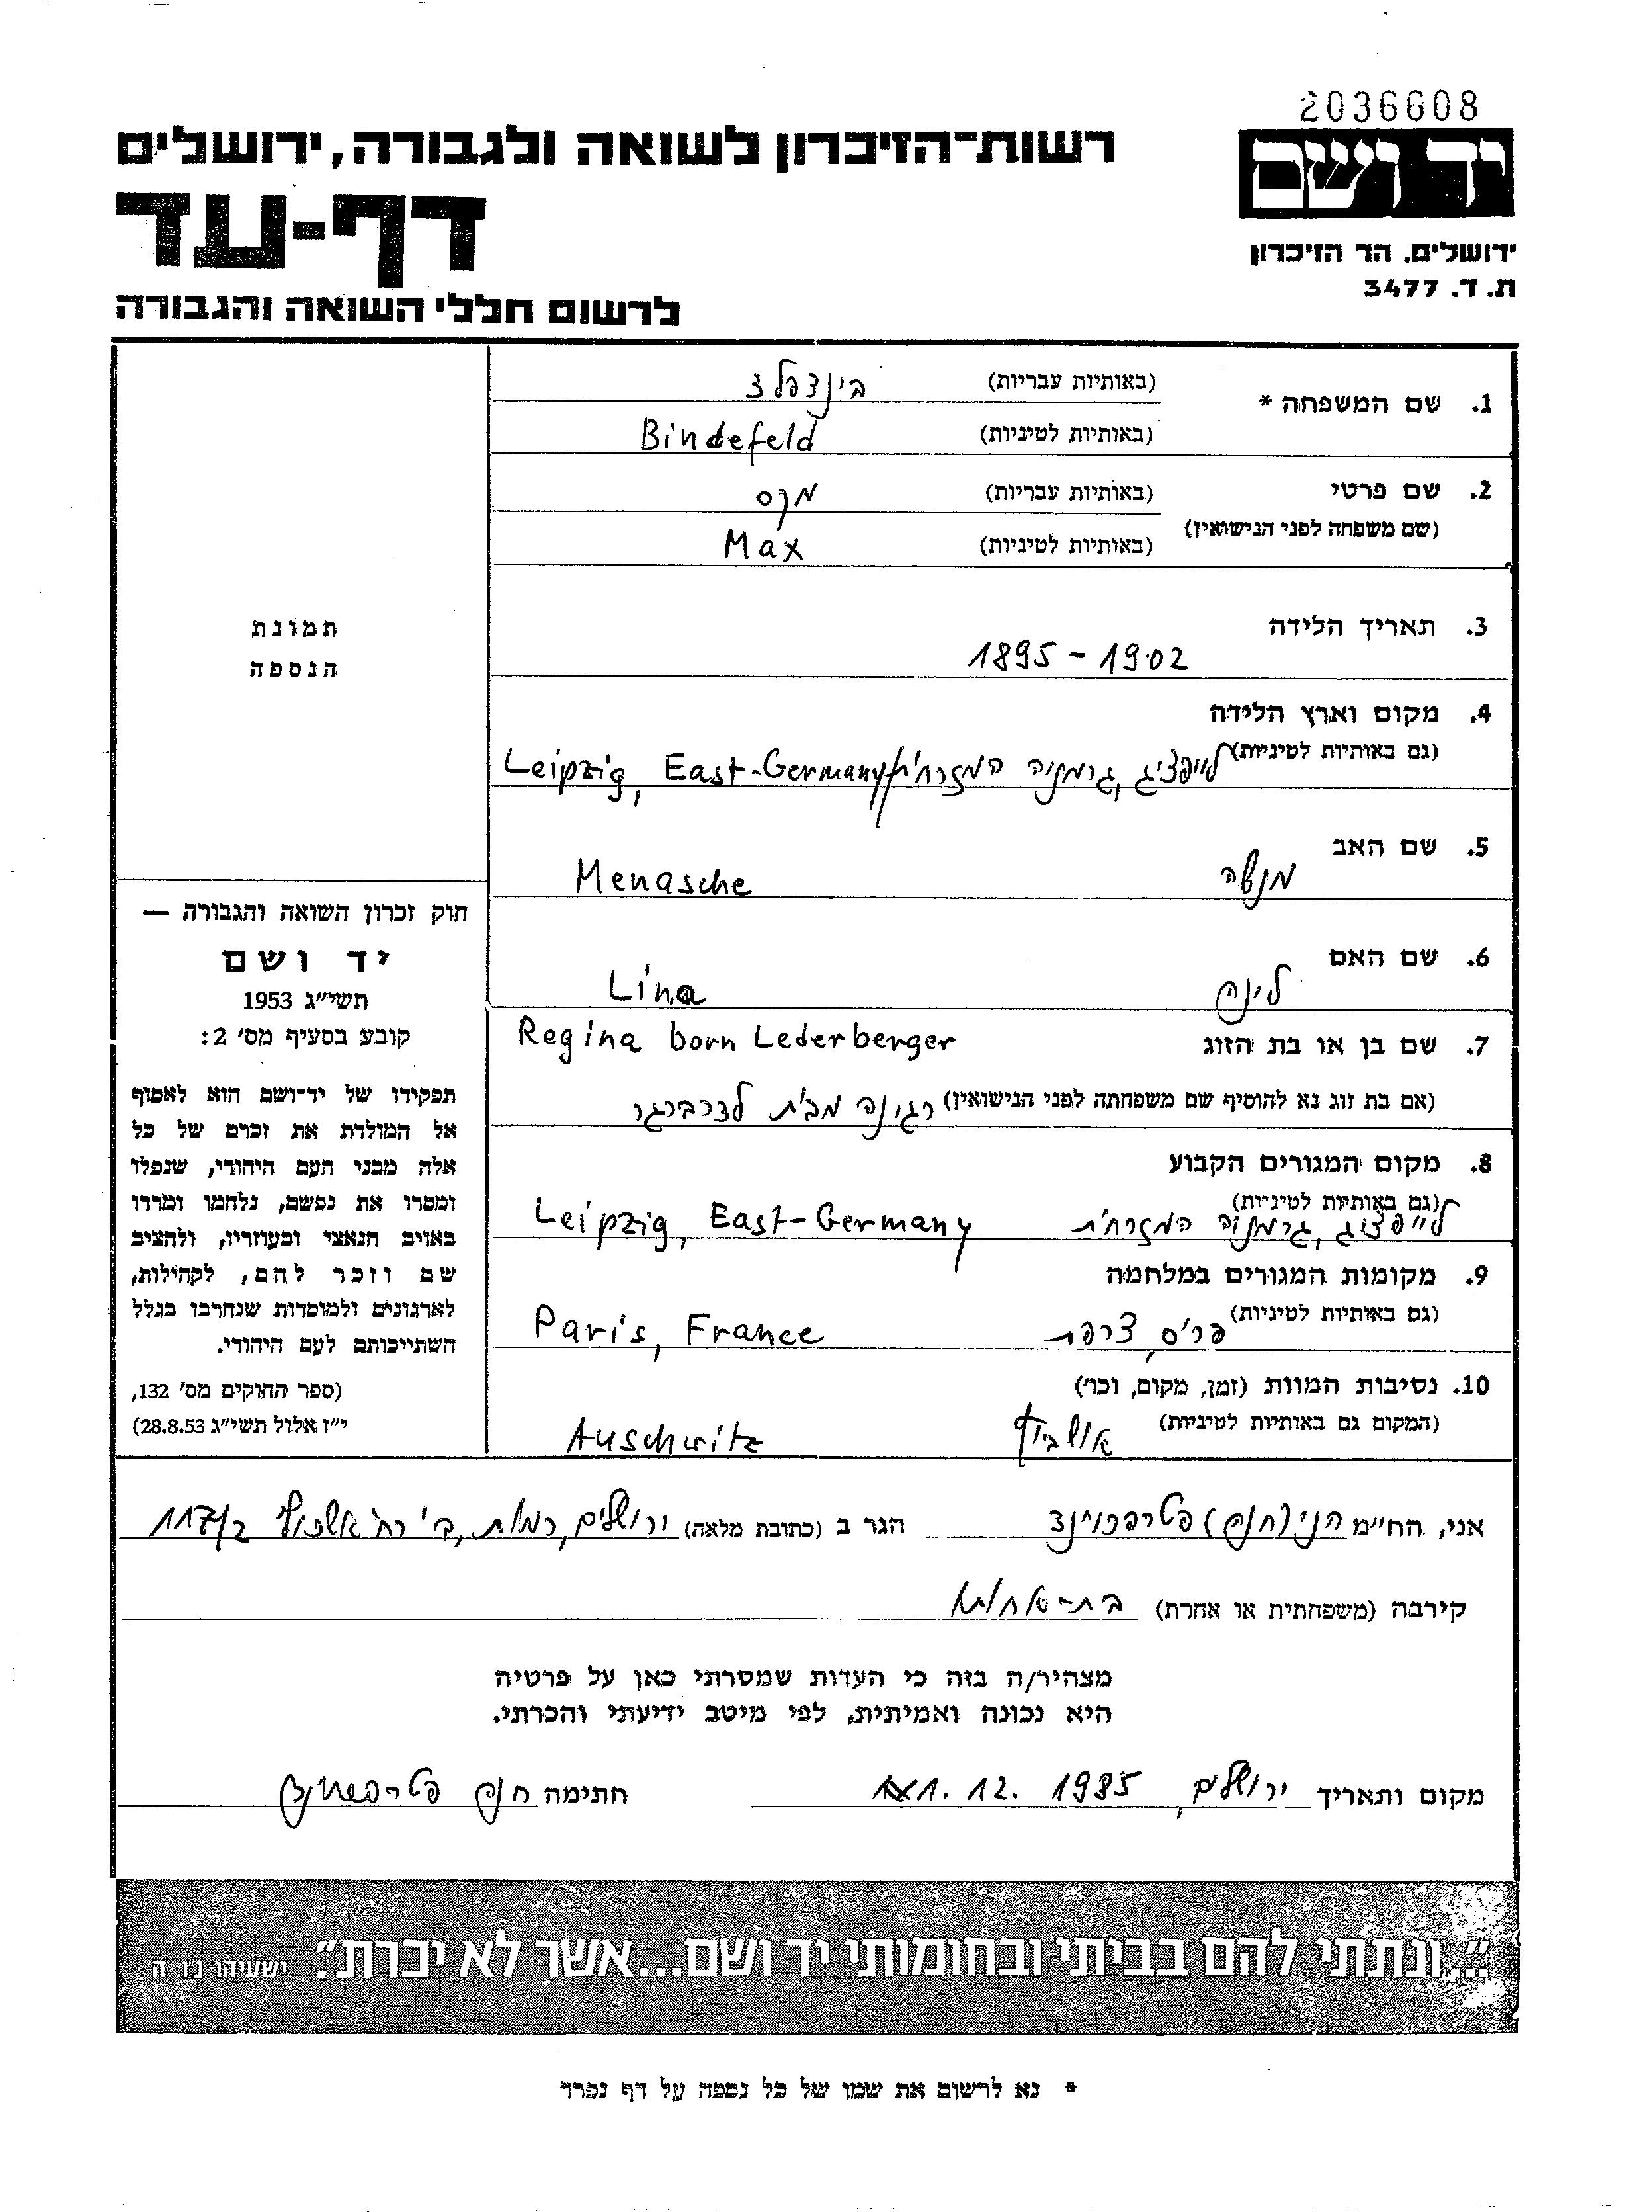 2036608
רשות־הזיכרון לשואה ולגבורה, ירושלים
יד ושם
דף-עד
ירושלים. הר הזיכרון
ת. ד. 3477
לרשום חללי השואה והגבורה
1. שם המשפחה * (באותיות עבריות) בינדפלד
(באותיות לטיניות) Bindefeld
2. שם פרטי (באותיות עבריות) מקס
(שם משפחה לפני הנישואין) (באותיות לטיניות) Max
3. תאריך הלידה
1895 - 1902
תמונת
הנספה
4. מקום וארץ הלידה
(גם באותיות לטיניות) לייפציג, גרמניה המזרחית Leipzig, East-Germany
5. שם האב
מנשה Menasche
חוק זכרון השואה והגבורה —
יד ושם
תשי״ג 1953
קובע בסעיף מס׳ 2:
תפקידו של יד־ושם הוא לאסוף
אל המולדת את זכרם של כל
אלה מבני העם היהודי, שנפלו
ומסרו את נפשם, נלחמו ומרדו
באויב הנאצי ובעוזריו, ולהציב
שם וזכר להם, לקהילות,
לארגונים ולמוסדות שנחרבו בגלל
השתייכותם לעם היהודי.
(ספר החוקים מס׳ 132,
י״ז אלול תשי״ג 28.8.53)
6. שם האם
לינה Lina
7. שם בן או בת הזוג Regina born Lederberger
(אם בת זוג נא להוסיף שם משפחתה לפני הנישואין) רגינה מבית לדרברגר
8. מקום המגורים הקבוע
(גם באותיות לטיניות)
לייפציג, גרמניה המזרחית Leipzig, East-Germany
9. מקומות המגורים במלחמה
(גם באותיות לטיניות) פריס, צרפת Paris, France
10. נסיבות המוות (זמן, מקום, וכו׳)
(המקום גם באותיות לטיניות) אושביץ Auschwitz
אני, החי״מ הני (חנה) הגר ב (כתובת מלאה) ירושלים, רמות, ב׳ רח׳ אשכולי 117/2
קירבה (משפחתית או אחרת) בת-אחותו
מצהיר/ה בזה כי העדות שמסרתי כאן על פרטיה
היא נכונה ואמיתית, לפי מיטב ידיעתי והכרתי.
מקום ותאריך ירושלים, 1. 12. 1985 חתימה חנה
״...ונתתי להם בביתי ובחומותי יד ושם...אשר לא יכרת״. ישעיהו נו ה
* נא לרשום את שמו של כל נספה על דף נפרד